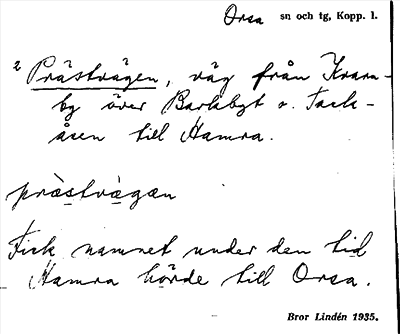 Orsa sn och tg, Kopp. l.
2 Prästvägen, väg från Kvarn-
by över Barkbyt o. Tack-
åsen till Hamra.
prästvägan
Fick namnet under den tid
Hamra hörde till Orsa.
Bror Lindén 1935.